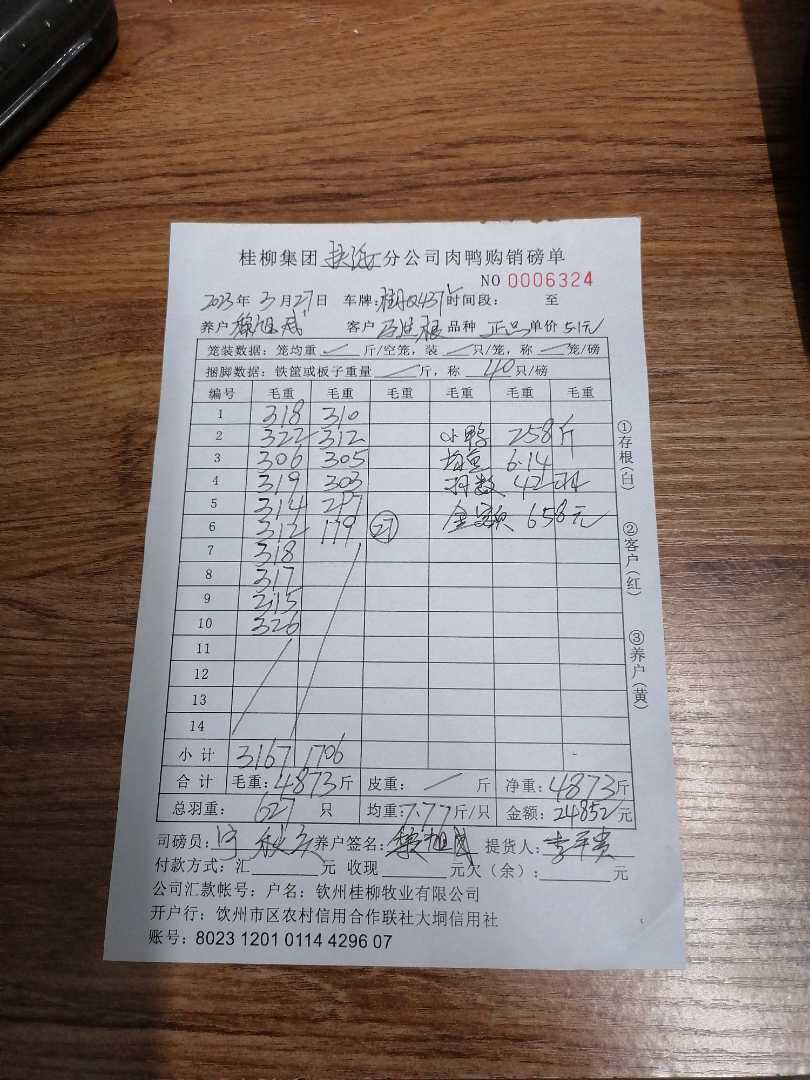 桂柳集团 分公司肉鸭购销磅单
NO 0006324
2023年3月27日 车牌: 时间段: 至
养户 客户 品种 正品 单价 5.1元
笼装数据:笼均重 / 斤/空笼,装 / 只/笼,称 / 笼/磅
捆脚数据:铁筐或板子重量 / 斤,称 40 只/磅
编号 毛重 毛重 毛重 毛重 毛重 毛重
1 318 310
2 322 312 小鸭 258斤
3 306 305 均重 6.14
4 319 303 只数 42只
5 314 297
6 312 179 27 金额 658元
7 318
8 317
9 315
10 326
11
12
13
14
小计 3167 1706
合计 毛重:4873斤 皮重: / 斤 净重:4873斤
总羽重: 627 只 均重:7.77斤/只 金额:24852元
司磅员: 养户签名: 提货人:李平贵
付款方式:汇 元 收现 元欠(余): 元
公司汇款帐号:户名:钦州桂柳牧业有限公司
开户行:钦州市区农村信用合作联社大垌信用社
账号:8023 1201 0114 4296 07
①存根(白)
②客户(红)
③养户(黄)